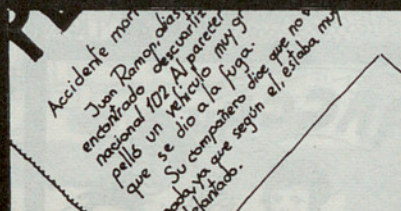 Accidente
Juan Ramon, alias
encontrado
nacional 102 Al parecer
pelló un vehículo muy
que se dio a la fuga.
Su compañero dice que no
ya que según el, estaba muy